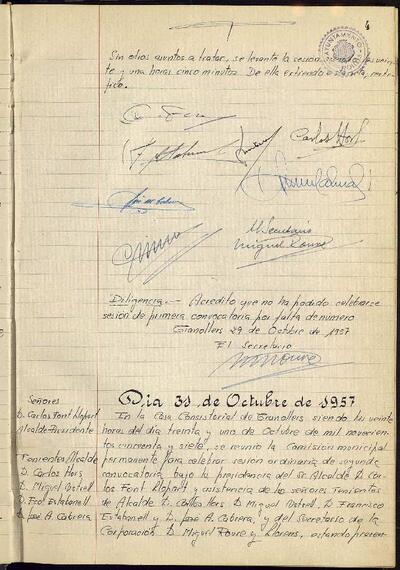 Sin otros asuntos a tratar, se levanta la sesión
te y una horas cinco minutos. De ella extiendo esta acta, certi-
fico.
AYUNTAMIENTO
Carlos Font
El Secretario
Miguel Roure
Diligencia.- Acredito que no ha podido celebrarse
sesión de primera convocatoria por falta de número
Granollers 29 de Octubre de 1957
El Secretario
Dia 31 de Octubre de 1957
Señores
D. Carlos Font Llopart
Alcalde Presidente
Tenientes Alcalde
D. Carlos Hors
D. Miguel Estrell
D. Fco. Estabanell
D. José A. Cabrera
En la Casa Consistorial de Granollers siendo las veinte
horas del dia treinta y uno de Octubre de mil novecien-
tos cincuenta y siete, se reunió la Comisión municipal
permanente para celebrar sesión ordinaria de segunda
convocatoria, bajo la presidencia del Sr. Alcalde D. Car-
los Font Llopart y asistencia de los señores Tenientes
de Alcalde D. Carlos Hors D. Miguel Estrell, D. Francisco
Estabanell y D. José A. Cabrera, y del Secretario de la
Corporación D. Miguel Roure y Llorens, estando presen-